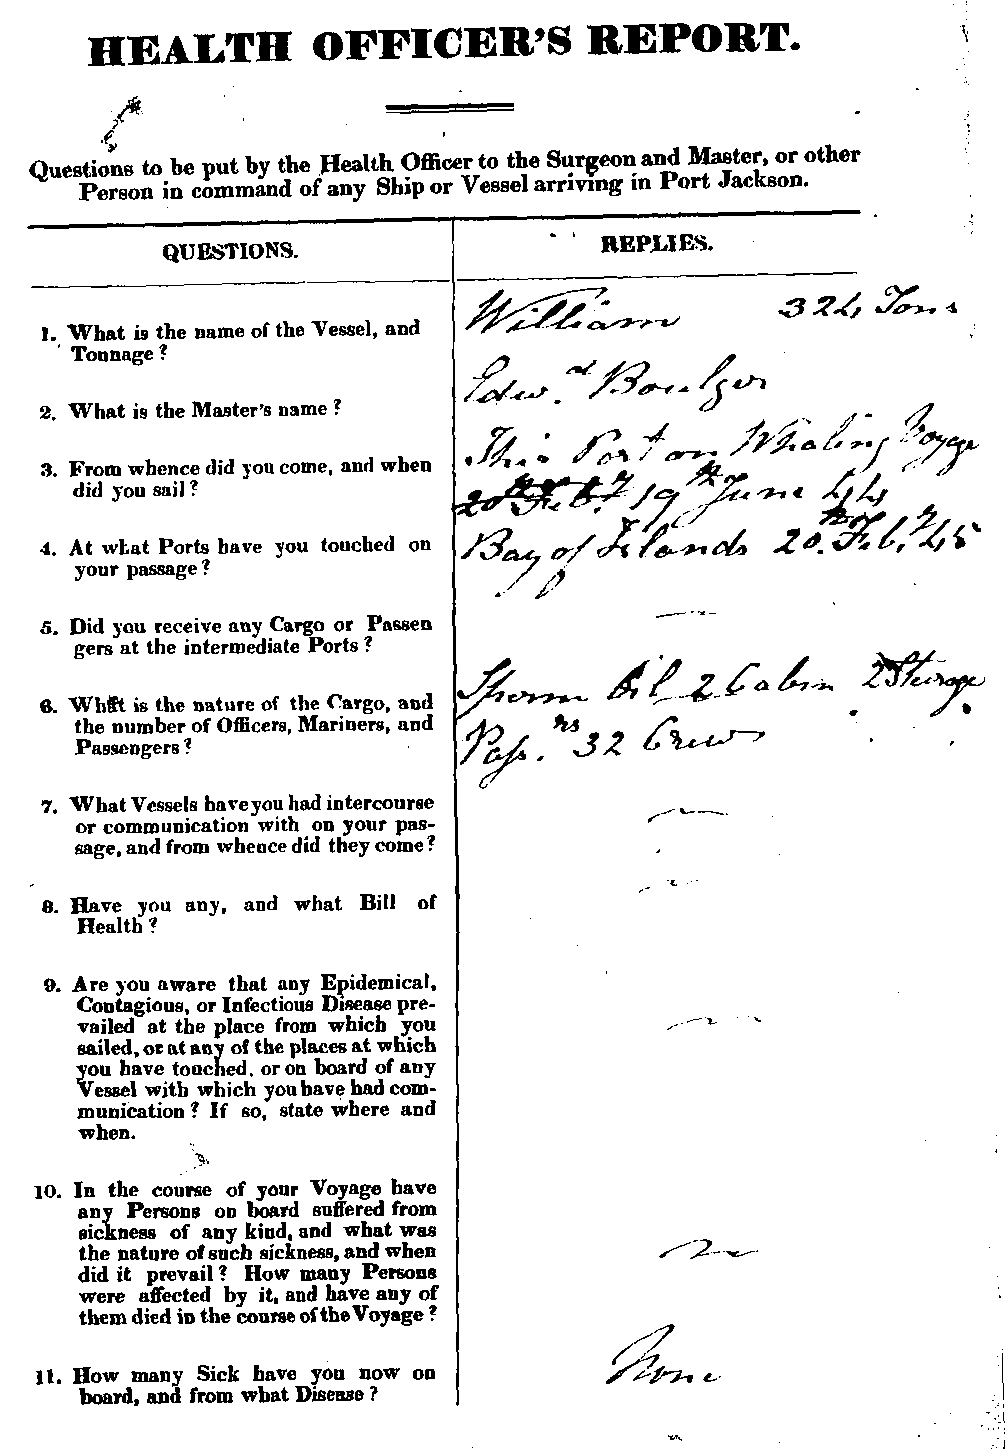 HEALTH OFFICER'S REPORT.
Questions to be put by the Health Officer to the Surgeon and Master, or other
Person in command of any Ship or Vessel arriving in Port Jackson.
QUESTIONS.
REPLIES.
1. What is the name of the Vessel, and
Tonnage?
William 324 Tons
2. What is the Master's name?
Edwd. Boulger
3. From whence did you come, and when
did you sail?
This Port on Whaling Voyage
20th Feby. 19th June 44
4. At what Ports have you touched on
your passage?
Bay of Islands 20th Feby. 45
5. Did you receive any Cargo or Passen
gers at the intermediate Ports?
6. What is the nature of the Cargo, and
the number of Officers, Mariners, and
Passengers?
Sperm Oil 2 Cabin 2 Sturage
Pass.rs 32 Crew
7. What Vessels have you had intercourse
or communication with on your pas-
sage, and from whence did they come?
8. Have you any, and what Bill of
Health?
9. Are you aware that any Epidemical,
Contagious, or Infectious Disease pre-
vailed at the place from which you
sailed, or at any of the places at which
you have touched, or on board of any
Vessel with which you have had com-
munication? If so, state where and
when.
10. In the course of your Voyage have
any Persons on board suffered from
sickness of any kind, and what was
the nature of such sickness, and when
did it prevail? How many Persons
were affected by it, and have any of
them died in the course of the Voyage?
11. How many Sick have you now on
board, and from what Disease?
None